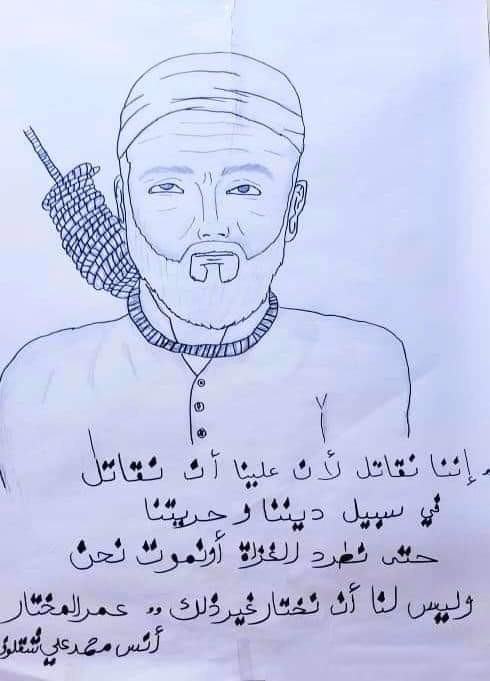 ,, إننا نقاتل لأن علينا أن نقاتل
في سبيل ديننا وحريتنا
حتى نطرد الغزاة أو نموت نحن
وليس لنا أن نختار غير ذلك ,, عمر المختار
أنس محمد علي شقلوف